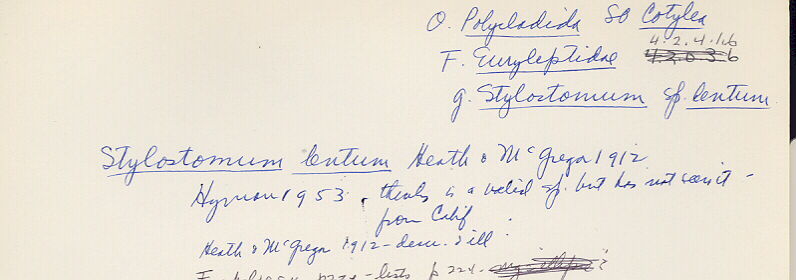 O. Polycladida SO Cotylea
4.2.4.1.6
F. Euryleptidae
g. Stylostomum sp. lentum
Stylostomum lentum Heath & McGregor 1912
Hyman 1953, thinks is a valid sp. but has not seen it -
from Calif
Heath & McGregor 1912 - descr. & ill
p 224 - lists p 224.